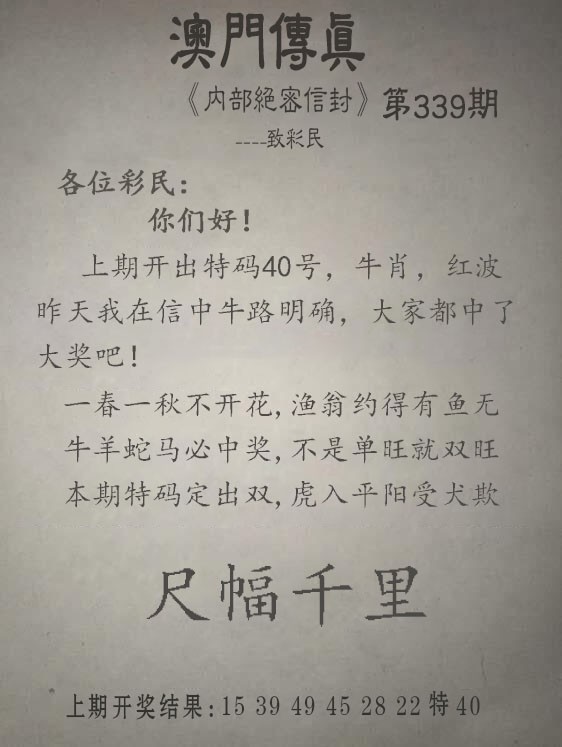 澳門傳眞
《内部絕密信封》第339期
----致彩民
各位彩民：
你们好！
上期开出特码40号，牛肖，红波
昨天我在信中牛路明确，大家都中了
大奖吧！
一春一秋不开花，渔翁约得有鱼无
牛羊蛇马必中奖，不是单旺就双旺
本期特码定出双，虎入平阳受犬欺
尺幅千里
上期开奖结果：15 39 49 45 28 22 特 40